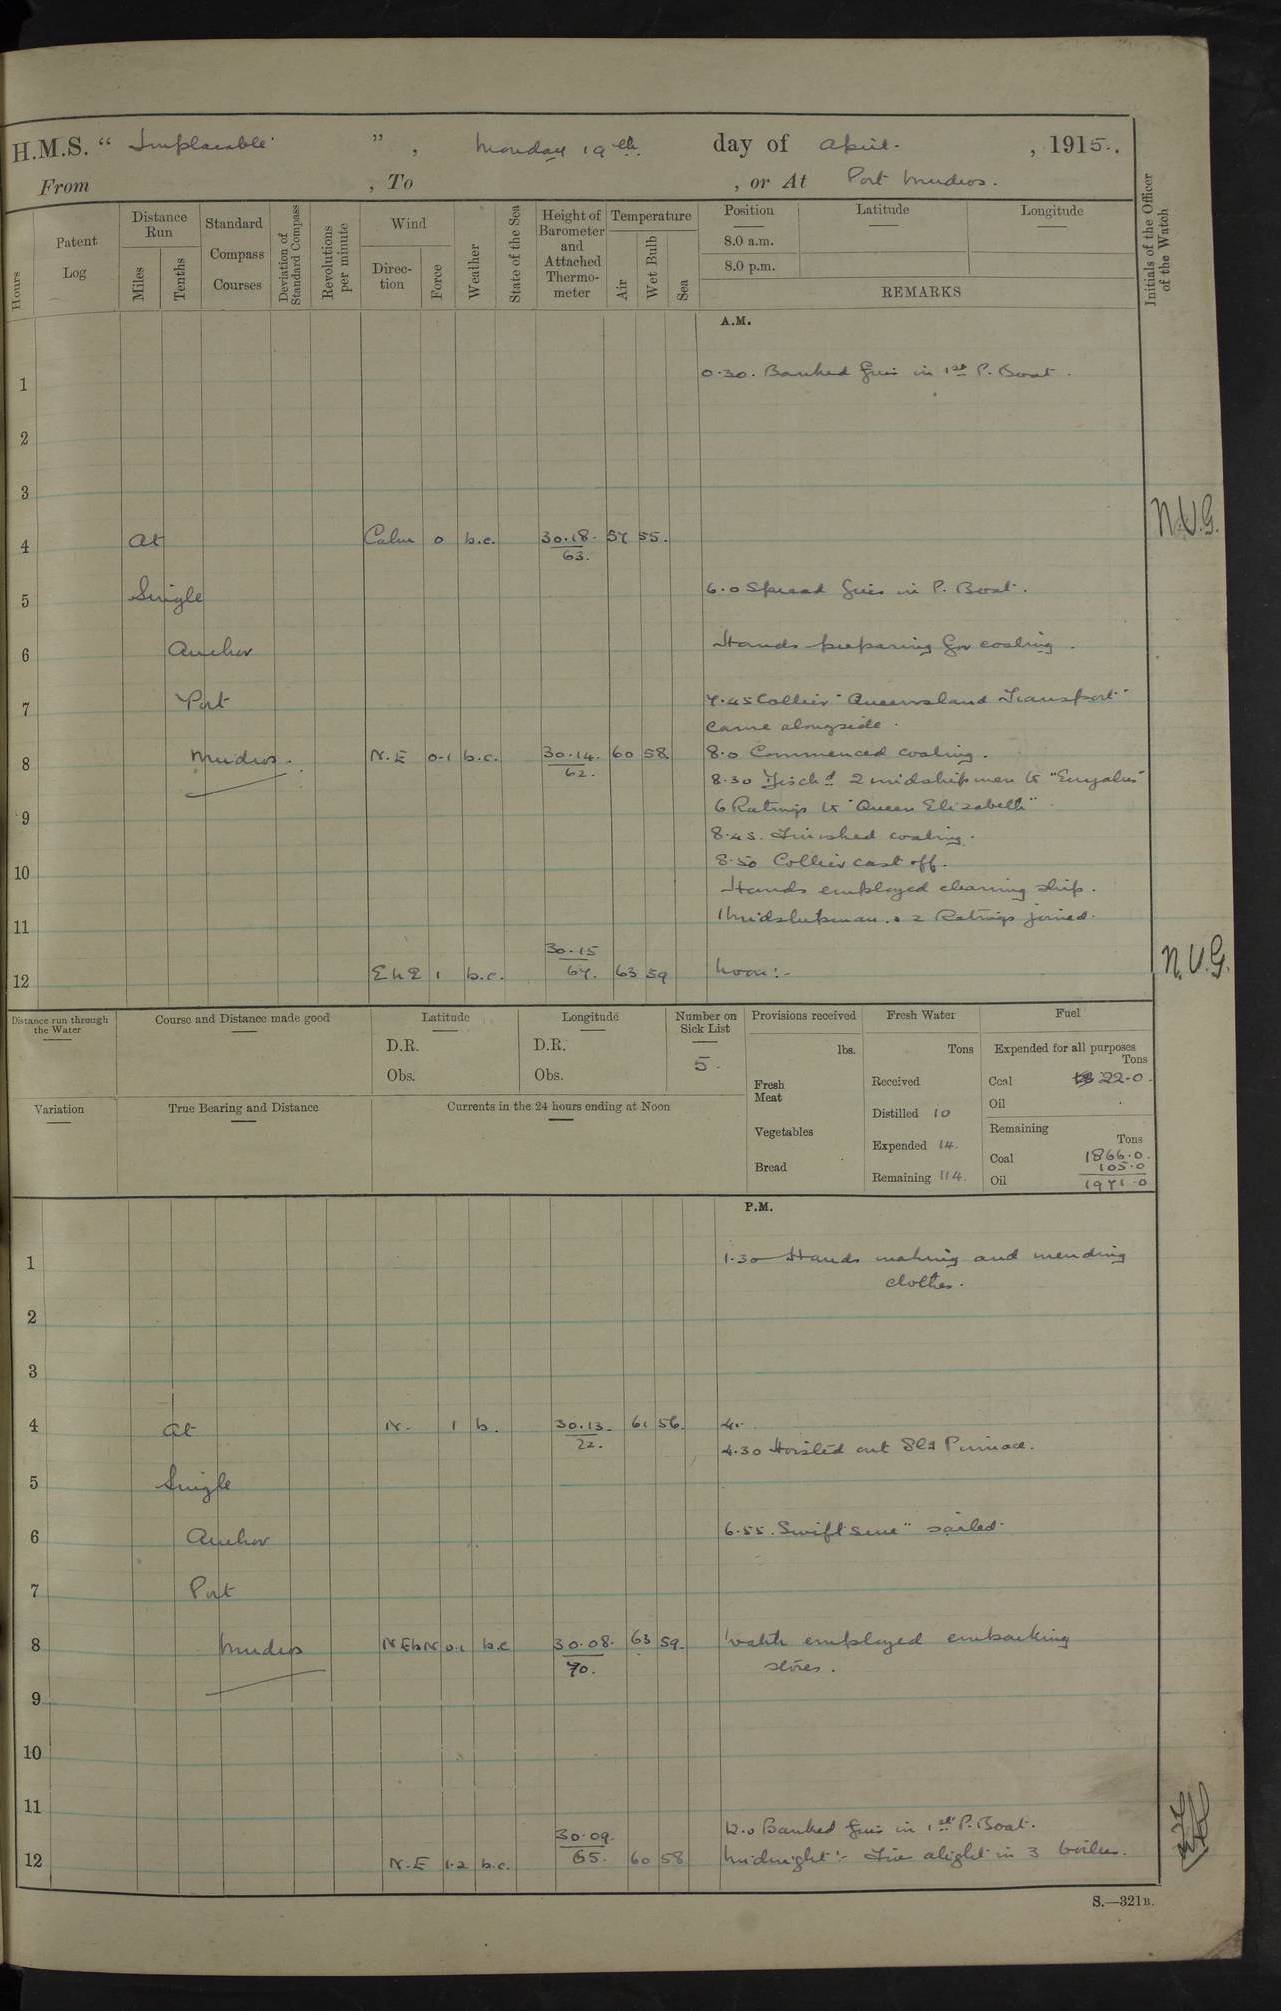 H.M.S. “ Implacable ” , Monday 19th day of April , 1915.
From , To , or At Port Mudros.
Hours
Patent Log
Distance Run
Miles
Tenths
Standard Compass Courses
Deviation of Standard Compass
Revolutions per minute
Wind
Direction
Force
Weather
State of the Sea
Height of Barometer and Attached Thermometer
Temperature
Air
Wet Bulb
Sea
Position Latitude Longitude
8.0 a.m.
8.0 p.m.
REMARKS
Initials of the Officer of the Watch
A.M.
1 0.30. Banked fires in 1st P. Boat.
2
3
N.V.G.
4 At Calm 0 b.c. 30.18. 57 55.
63.
5 Single 6.0 Spread fires in P. Boat.
6 Anchor Hands preparing for coaling.
7 Port 7.45 Collier "Queensland Transport"
came alongside.
8 Mudros. N.E 0-1 b.c. 30.14. 60 58 8.0 Commenced coaling.
62.
8.30 Disch'd 2 midshipmen to "Euryalus"
9 6 Ratings to "Queen Elizabeth"
8.45. Finished coaling.
10 8.50 Collier cast off.
Hands employed cleaning ship.
11 1 midshipman & 2 Ratings joined.
12 E N E 1 b.c. 30.15 63 59 Noon:-
67.
N.V.G.
Distance run through the Water
Course and Distance made good
Latitude
D.R.
Obs.
Longitude
D.R.
Obs.
Number on Sick List
5.
Provisions received
lbs.
Fresh Meat
Vegetables
Bread
Fresh Water
Tons
Received
Distilled 10
Expended 14.
Remaining 114.
Fuel
Expended for all purposes
Tons
Coal 22.0.
Oil
Remaining
Tons
Coal 1866.0.
105.0
Oil 1971.0
Variation
True Bearing and Distance
Currents in the 24 hours ending at Noon
P.M.
1 1.30 Hands making and mending
clothes.
2
3
4 At N. 1 b. 30.13. 61 56. 4.
22.
4.30 Hoisted out Sld Pinnace.
5 Single
6 Anchor 6.55. Swiftsure" sailed.
7 Port
8 Mudros N.EbN 0.1 b.c 30.08. 63 59. Watch employed embarking
70.
stores.
9
10
11
12.0 Banked fires in 1st P. Boat.
12 N.E 1.2 b.c. 30.09. 60 58 Midnight:- Fires alight in 3 boilers.
65.
S.—321B.